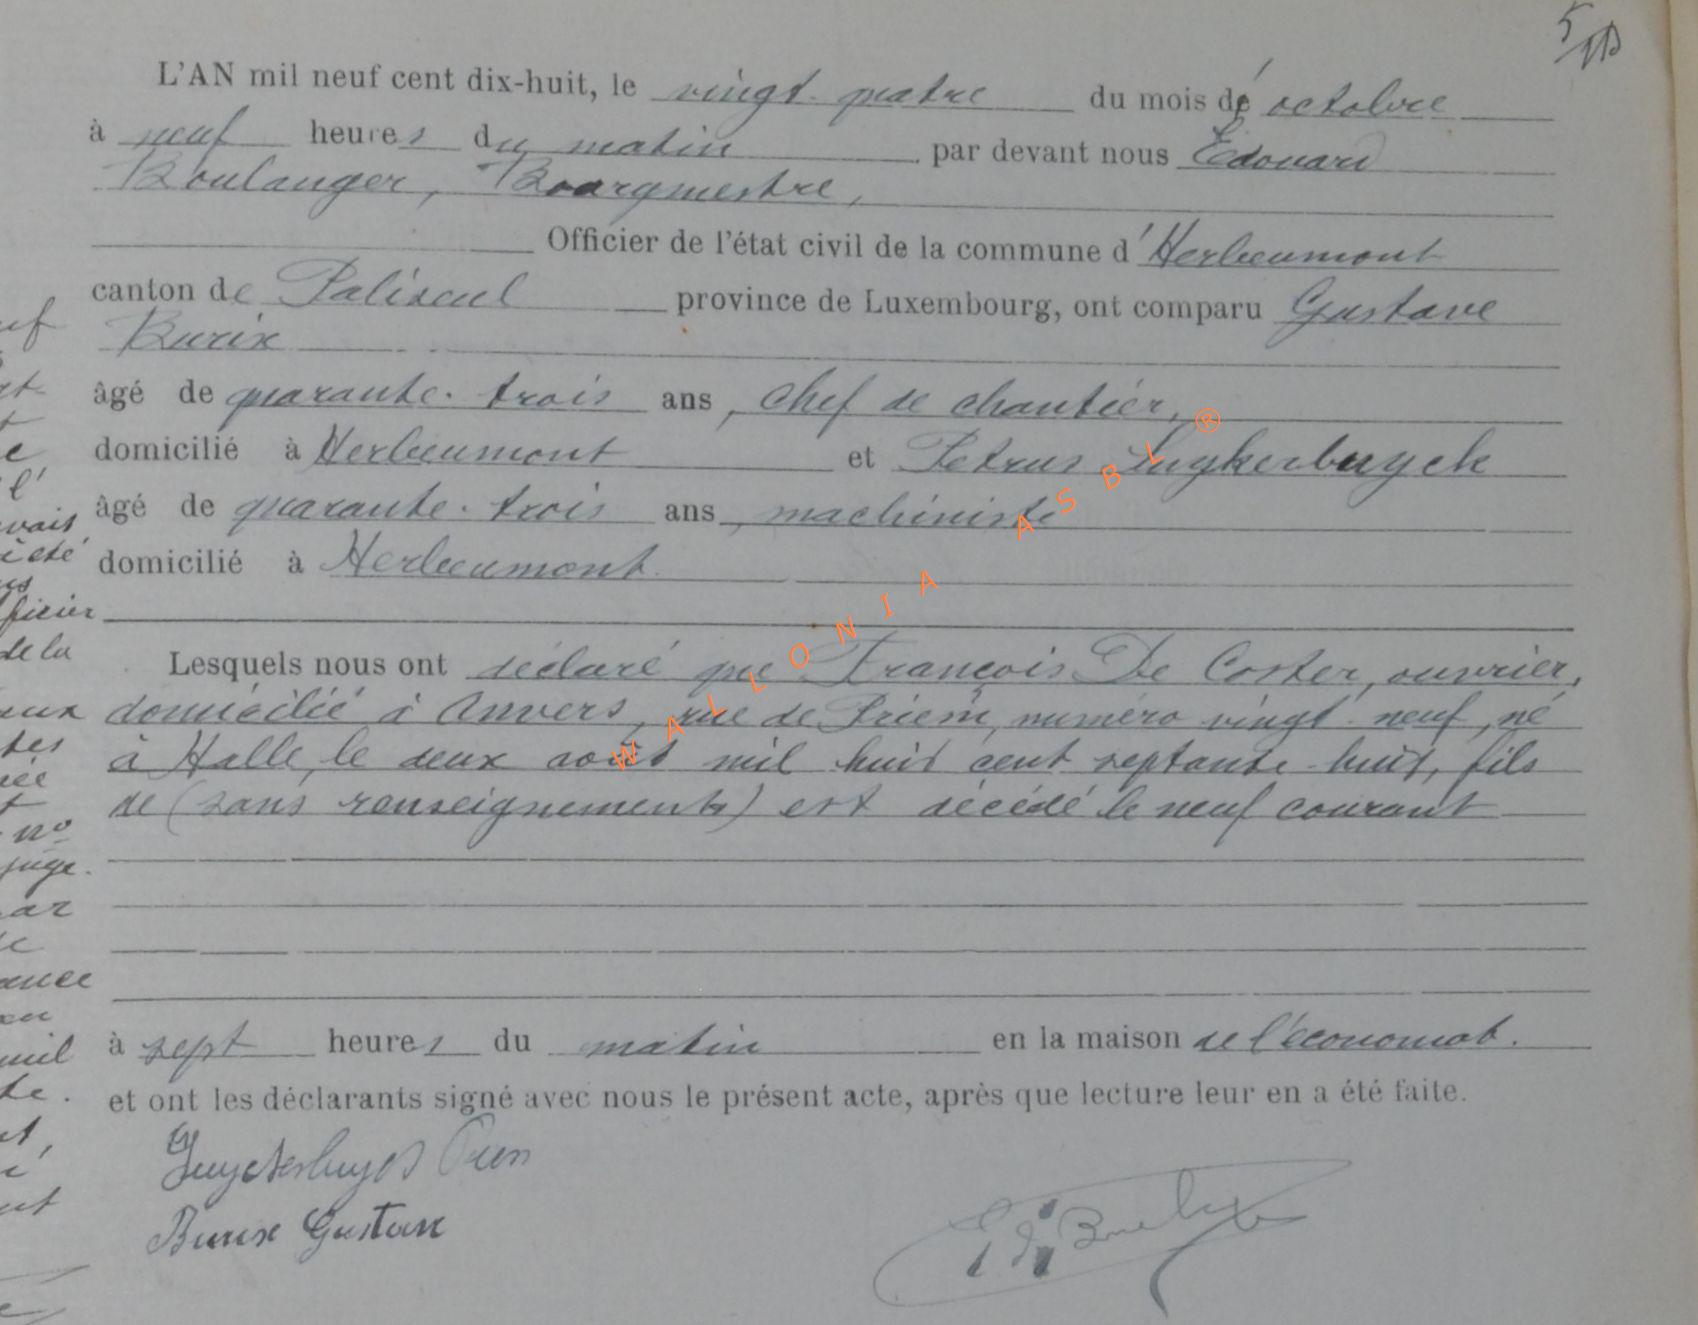 5
L'AN mil neuf cent dix-huit, le vingt-quatre du mois d' octobre
à neuf heures du matin par devant nous Edouard
Boulanger, Bourgmestre,
Officier de l'état civil de la commune d'Herbeumont
canton de Paliseul province de Luxembourg, ont comparu Gustave
Burix
âgé de quarante-trois ans, chef de chantier,
domicilié à Herbeumont et Petrus
âgé de quarante-trois ans, machiniste
domicilié à Herbeumont
Lesquels nous ont déclaré que François De Coster, ouvrier,
domicilié à Anvers, rue de numéro vingt-neuf, né
à Halle, le deux août mil huit cent septante-huit, fils
de (sans renseignements) est décédé le neuf courant
à sept heures du matin en la maison de l'économat.
et ont les déclarants signé avec nous le présent acte, après que lecture leur en a été faite.
Burix Gustave
WALLONIA ASBL ®
uf
e
l'
vais
été
ficier
de la
aux
tes
née
nº
juge.
ar
ance
mil
te.